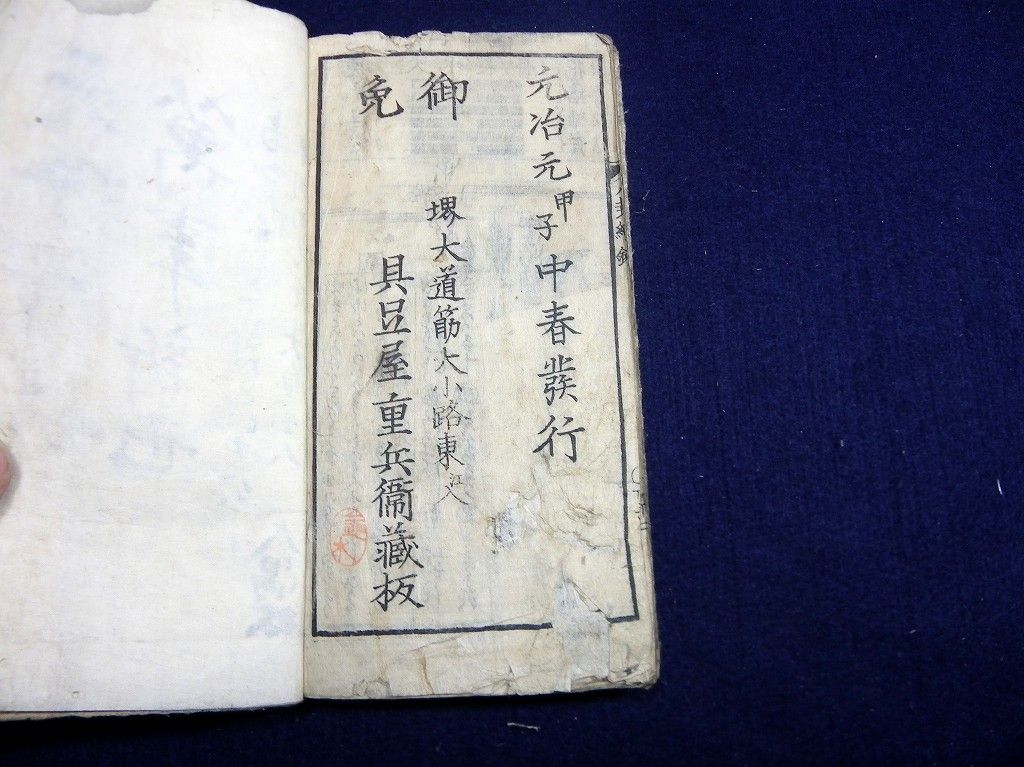 元治元甲子中春發行
御免
堺大道筋大小路東江入
具足屋重兵衞藏板